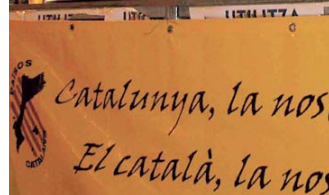 UTILITZA
Catalunya, la nos
El català, la nos